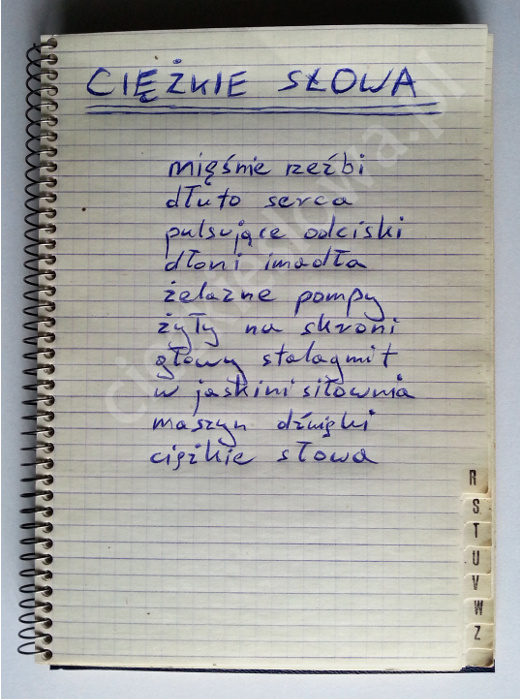 CIĘŻKIE SŁOWA
mięśnie rzeźbi
dłuto serca
pulsujące odciski
dłoni imadła
żelazne pompy
żyły na skroni
głowy stalagmit
w jaskini siłownia
maszyn dźwięki
ciężkie słowa
R
S
T
U
V
W
Z
ciezkieslowa.pl